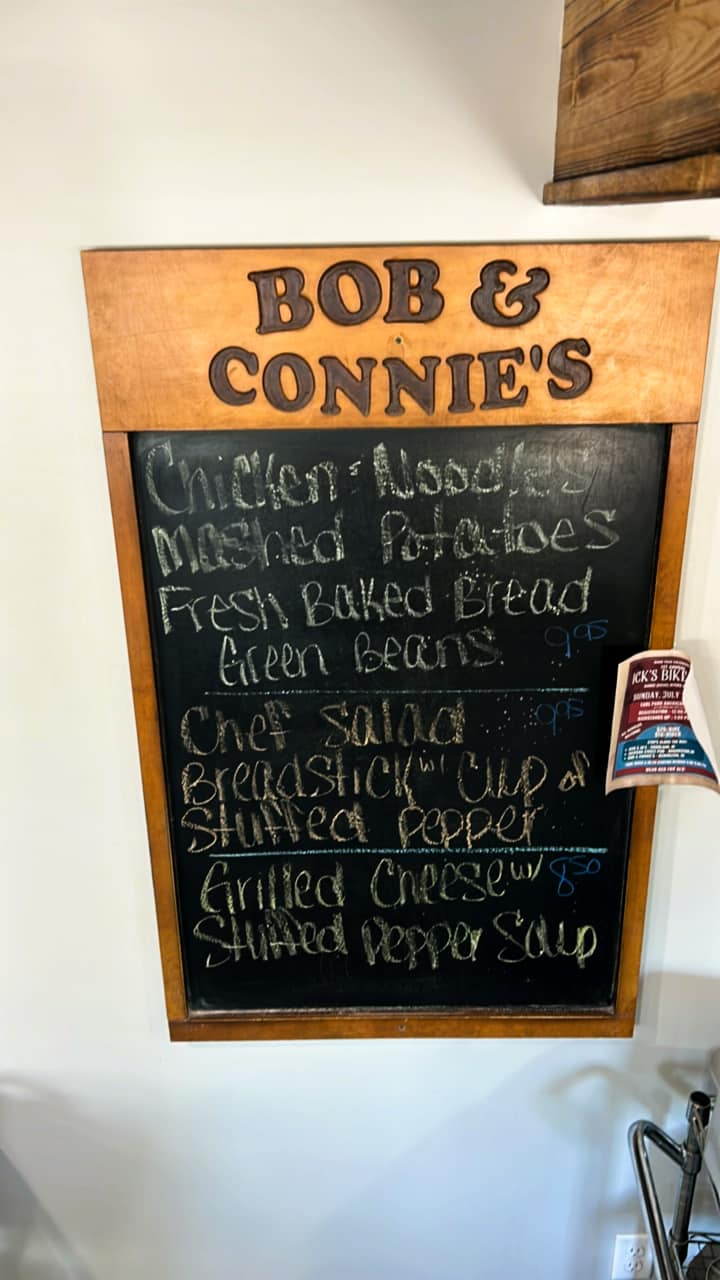 BOB &
CONNIE'S
Chicken & Noodles
Mashed Potatoes
Fresh Baked Bread
Green Beans 9.95
Chef Salad 9.95
Breadstick w/ Cup of
Stuffed Pepper
Grilled Cheese w/ 8.50
Stuffed Pepper Soup
ICK'S BIKE
SUNDAY, JULY